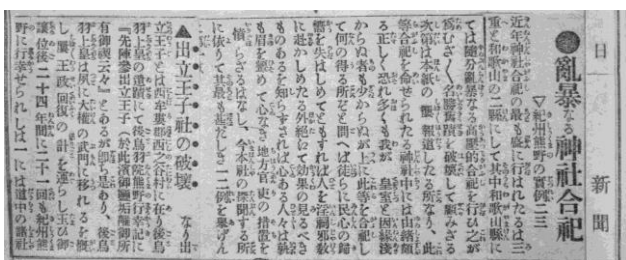 日
新聞
●亂暴なる神社合祀
▽紀州熊野の實例二三
近年神社合祀の最も盛に行はれたるは三
重と和歌山の二縣にして其中和歌山縣に
ては隨分亂暴なる高壓的合祀を行ひ之が
爲むざく名勝舊蹟を破壞して顧みざる
次第は本紙の屢報道したる所なり、此
等合祀を命ぜられたる神社中には由緒頗
る正しく恐れ多くも我が 皇室と因縁淺
からぬ者も少からぬが上に此等を合祀し
て何の得る所ぞと問へば徒らに民心の歸
嚮を失はしめてともすれば人を淫祠邪教
に趨かしめたる外絶えて効果の見るべき
ものあるを知らずされば心ある人々は孰
も眉を顰めて心なき地方官吏の措置を
憤らざるはなし、今本社の探聞する所
に依りて其最も甚だしき一二例を擧げん
▲出立王子社の破壞 なり出
立王子とは西牟婁郡西之谷村に在り後鳥
羽上皇の遺蹟にて後鳥羽院熊野行幸記に
『先陣參出立王子(於此濱御鹽垢離御所
有御禊云々』とあるが即ち是あり、後鳥
羽上皇は夙に大權の武門に移れるを慨
し屢王政回復の計を運らし玉ひ御
讓位後二十四年間に二十一回も紀州熊
野に行幸せられしは一には道中の諸社